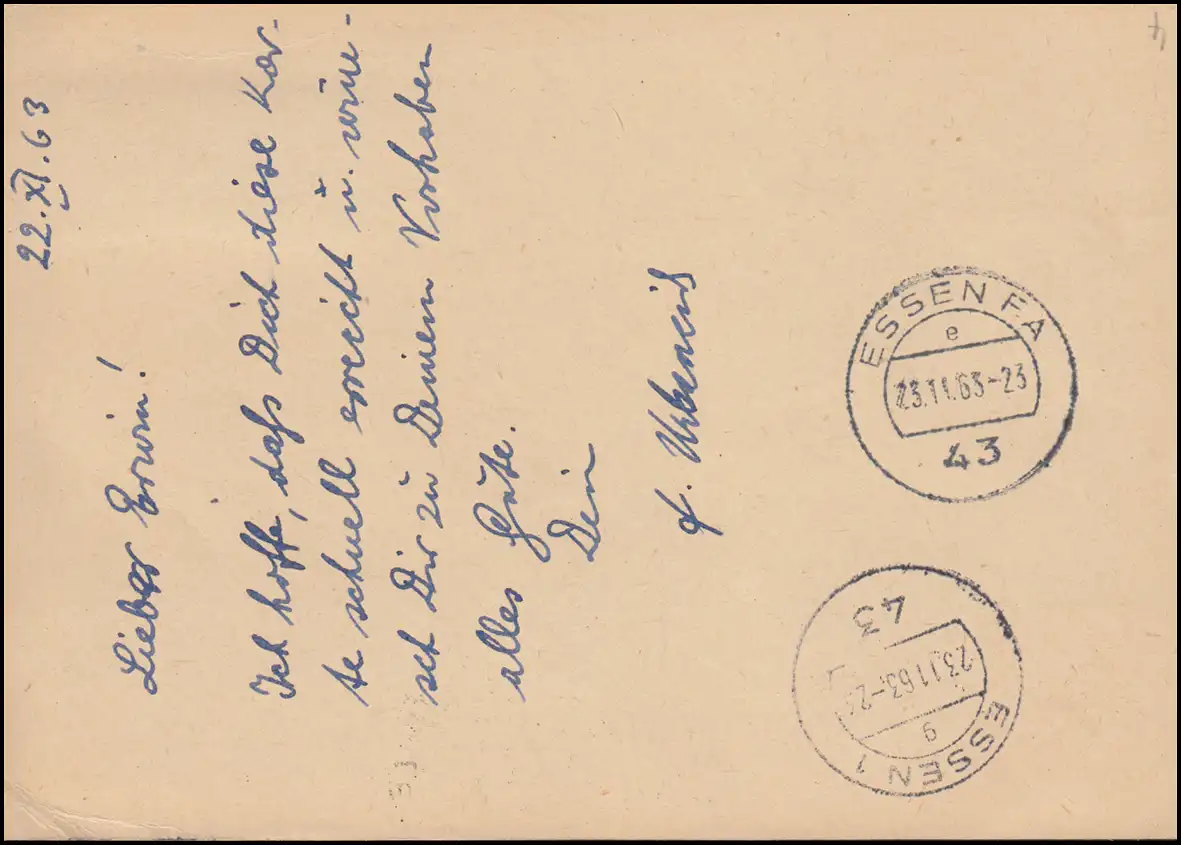 22.XI.63
Lieber Erwin!
Ich hoffe, dass Dich diese Kar-
te schnell erreicht u. wün-
sch Dir zu Deinem Vorhaben
alles Gute.
Dein
ESSEN FA
e
23.11.63-23
43
ESSEN 1
g
23.11.63-2
43
4